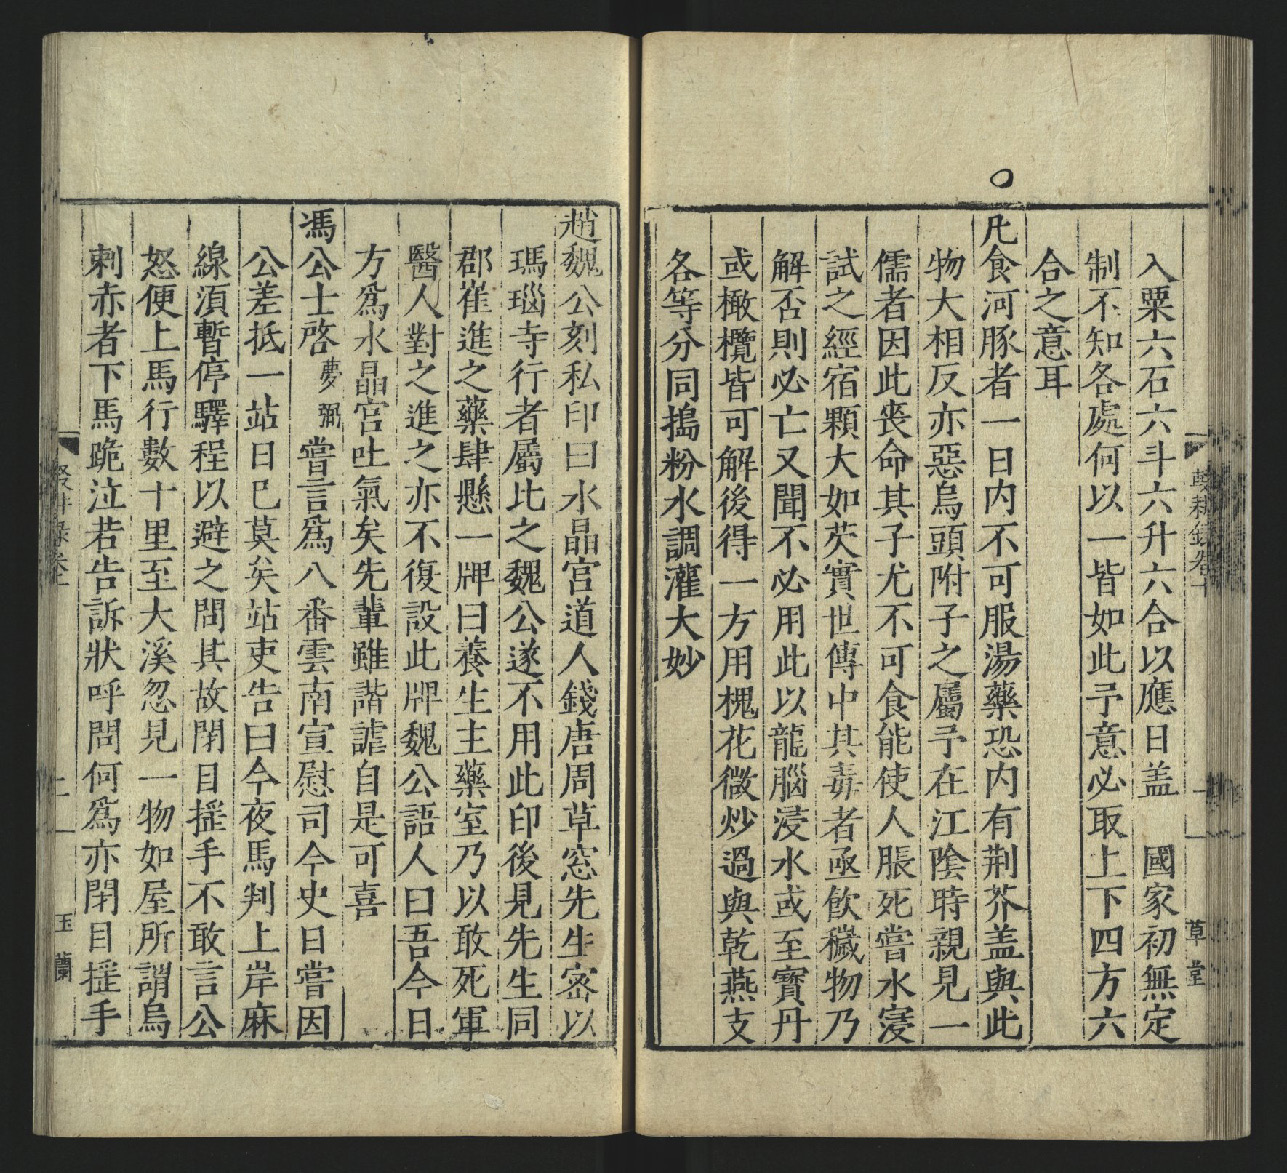 入粟六石六斗六升六合以應日盖　國家初無定
制不知各處何以一皆如此予意必取上下四方六
合之意耳
凡食河豚者一日内不可服湯藥恐内有荆芥盖與此
物大相反亦惡烏頭附子之屬予在江陰時親見一
儒者因此喪命其子尤不可食能使人脹死嘗水寖
試之經宿顆大如芡實世傳中其毒者亟飲穢物乃
解否則必亡又聞不必用此以龍腦浸水或至寶丹
或橄欖皆可解後得一方用槐花微炒過與乾燕支
各等分同搗粉水調灌大妙
輟耕錄卷十
草堂
趙魏公刻私印曰水晶宫道人錢唐周草窓先生宻以
瑪瑙寺行者屬比之魏公遂不用此印後見先生同
郡崔進之藥肆懸一牌曰養生主藥室乃以敢死軍
醫人對之進之亦不復設此牌魏公語人曰吾今日
方爲水晶宫吐氣矣先輩雖諧謔自是可喜
馮公士啓夢弼嘗言爲八番雲南宣慰司令史日嘗因
公差抵一站日巳莫矣站吏告曰今夜馬判上岸麻
線湏暫停驛程以避之問其故閉目揺手不敢言公
怒便上馬行數十里至大溪忽見一物如屋所謂烏
剌赤者下馬跪泣若告訴狀呼問何爲亦閉目揺手
玉蘭